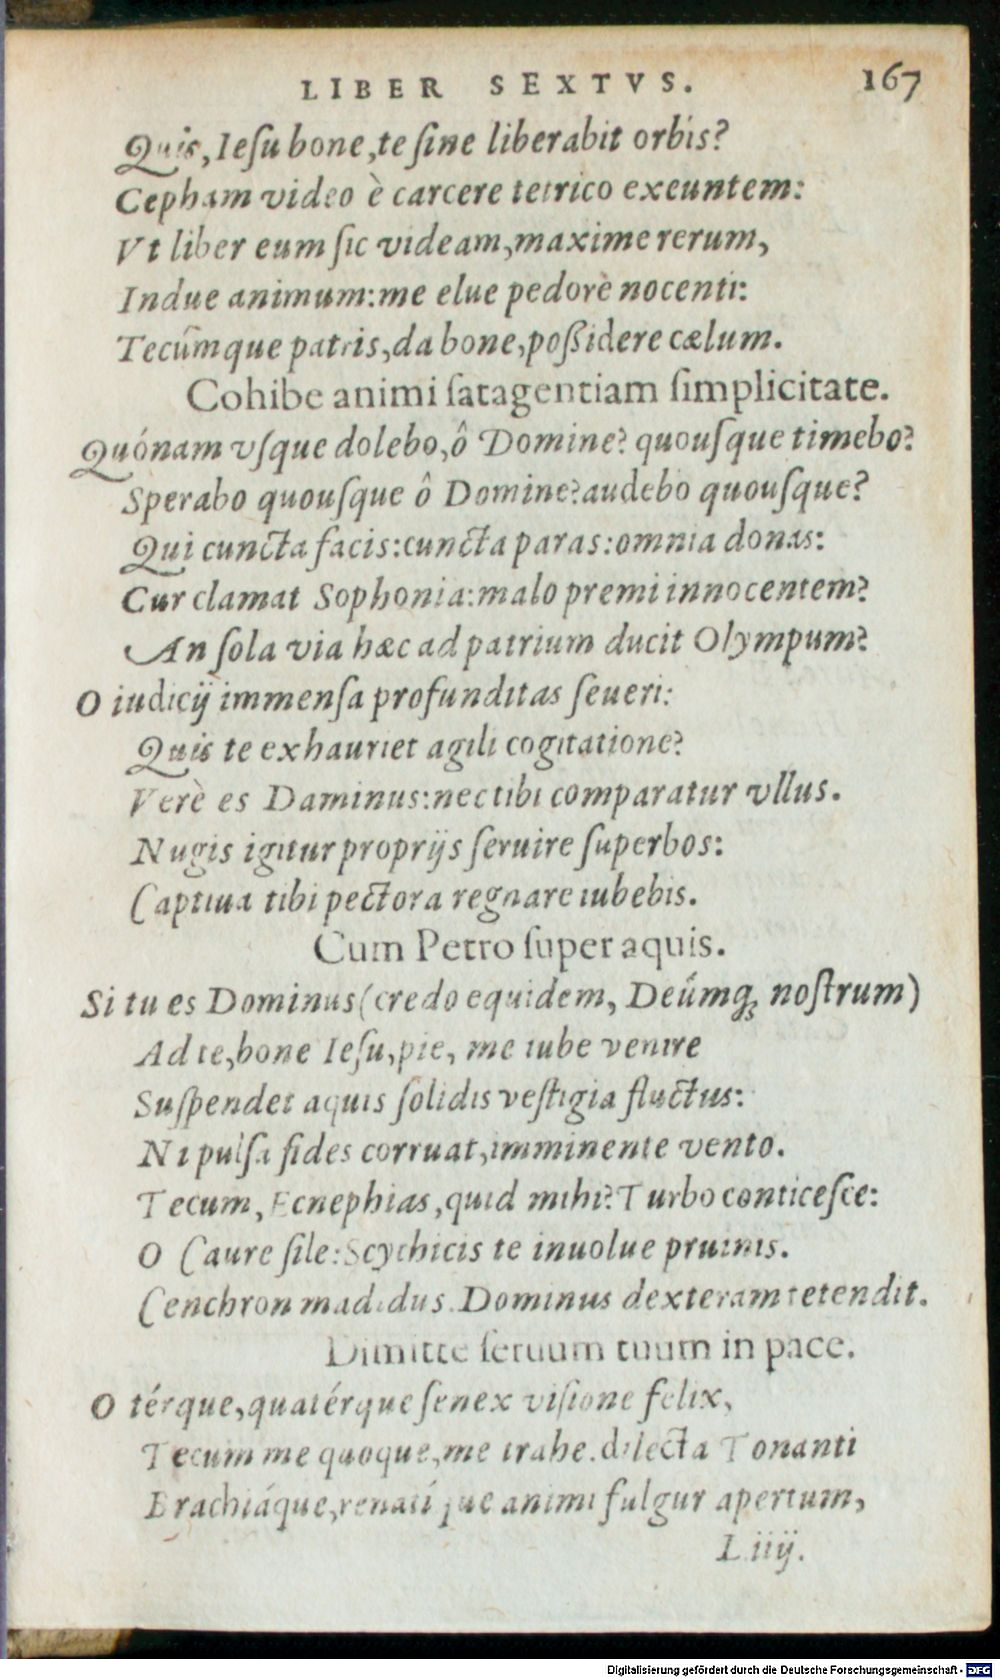 LIBER SEXTVS. 167
Quis, Iesu bone, te sine liberabit orbis?
Cepham video è carcere tetrico exeuntem:
Vt liber eum sic videam, maxime rerum,
Indue animum: me elue pedorè nocenti:
Tecúmque patris, da bone, possidere cælum.
Cohibe animi satagentiam simplicitate.
Quónam vsque dolebo, ô Domine? quousque timebo?
Sperabo quousque ô Domine? audebo quousque?
Qui cuncta facis: cuncta paras: omnia donas:
Cur clamat Sophonia: malo premi innocentem?
An sola via hæc ad patrium ducit Olympum?
O iudicij immensa profunditas seueri:
Quis te exhauriet agili cogitatione?
Verè es Daminus: nec tibi comparatur vllus.
Nugis igitur proprijs seruire superbos:
Captiua tibi pectora regnare iubebis.
Cum Petro super aquis.
Si tu es Dominus (credo equidem, Deúmq; nostrum)
Ad te, bone Iesu, pie, me iube venire
Suspendet aquis solidis vestigia fluctus:
Ni pulsa fides corruat, imminente vento.
Tecum, Ecnephias, quid mihi? Turbo conticesce:
O Caure sile: Scythicis te inuolue pruinis.
Cenchron madidus Dominus dexteram tetendit.
Dimitte seruum tuum in pace.
O térque, quatérque senex visione felix,
Tecum me quoque, me trahe. dilecta Tonanti
Brachiáque, renatíque animi fulgur apertum,
L iiij.
Digitalisierung gefördert durch die Deutsche Forschungsgemeinschaft - DFG